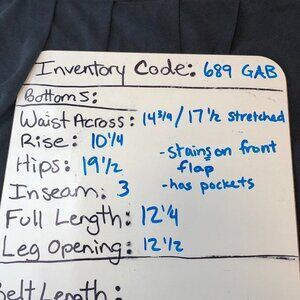 Inventory Code: 689 GAB
Bottoms:
Waist Across: 14 3/4 / 17 1/2 stretched
Rise: 10 1/4
Hips: 19 1/2
- stains on front flap
- has pockets
Inseam: 3
Full Length: 12 1/4
Leg Opening: 12 1/2
Belt Length: